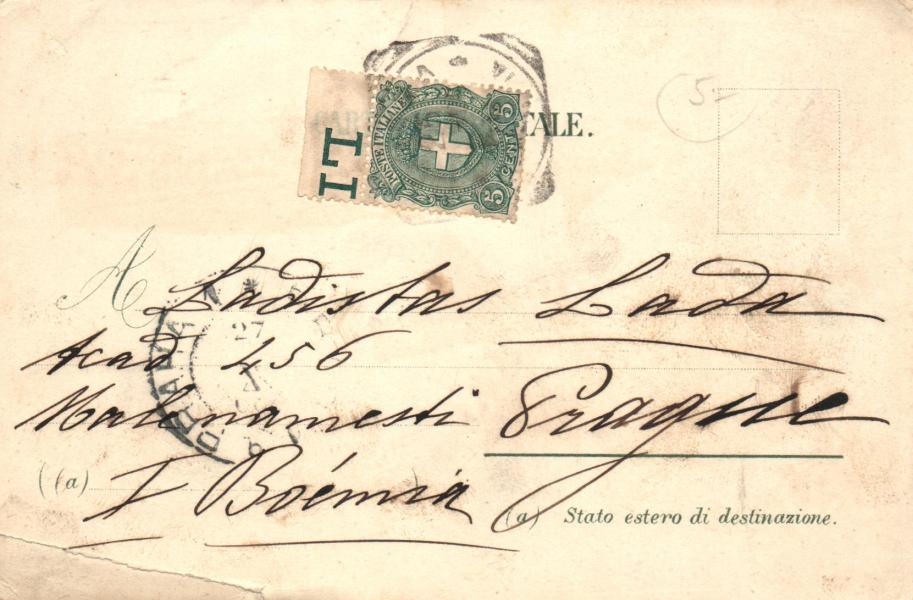 TALE.
5-
POSTE ITALIANE
5 CENT 5
IT
A Ladislas Lada
Acad 456
Malenamesti Prague
(a) I Boémia
(a) Stato estero di destinazione.
PRAHA
27